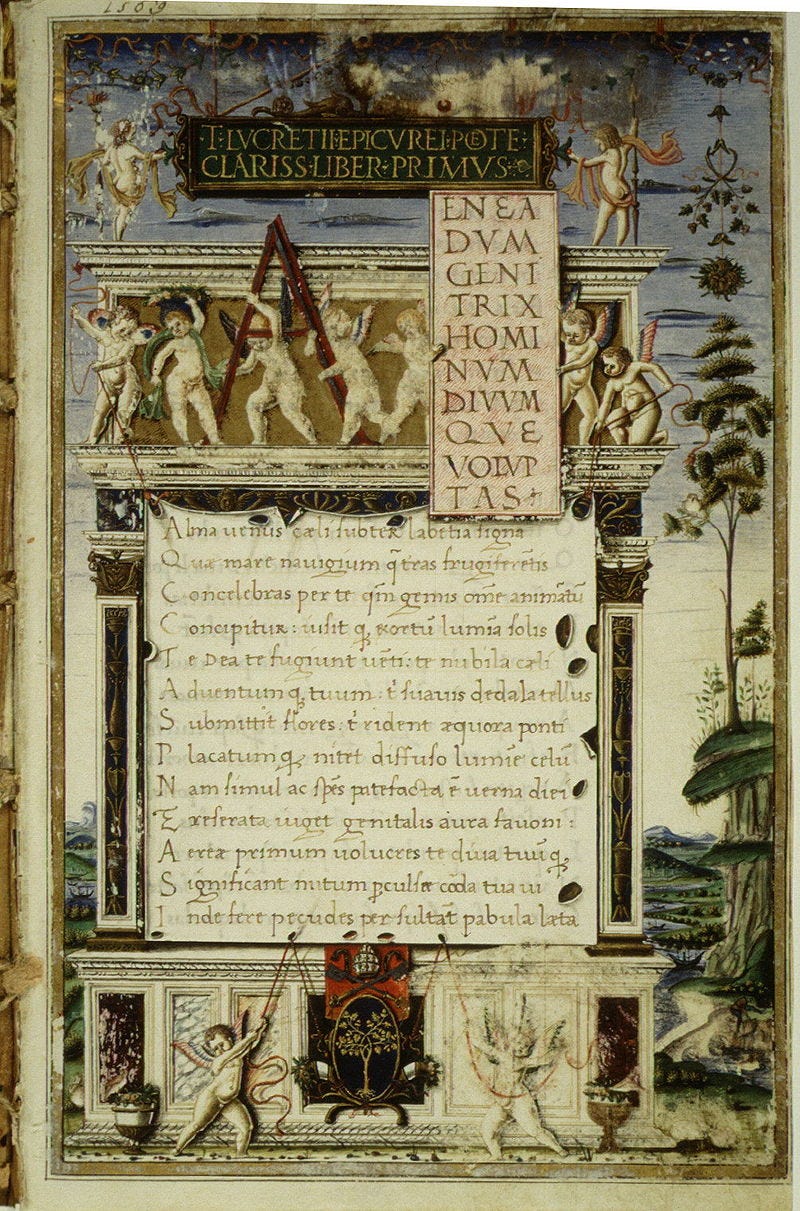 1569
T·LVCRETII·EPICVREI·POETE·
CLARISS·LIBER·PRIMVS·
A
ENEA
DVM
GENI
TRIX
HOMI
NVM
DIVVM
QVE
VOLVP
TAS
Alma uenus cæli subter labetia signa
Quæ mare nauigium q̃ tras frugiferẽtis
Concelebras per te qm̃ genus om̃e animãtũ
Concipitur: uisit q; exortũ lumĩa solis
Te Dea te fugiunt uẽti: te nubila cæli
Aduentum q; tuum: t̃ suauis dedala tellus
Submittit flores: t̃ rident æquora ponti
Placatum q; nitet diffuso lumĩe celũ
Nam simul ac sp̃es patefacta ẽ uerna diei
Et reserata uiget genitalis aura fauoni:
Aereæ primum uolucres te diua tuũ q;
Significant nutum p̱culsæ cõda tua ui
Inde fere pecudes per sultãt pabula læta